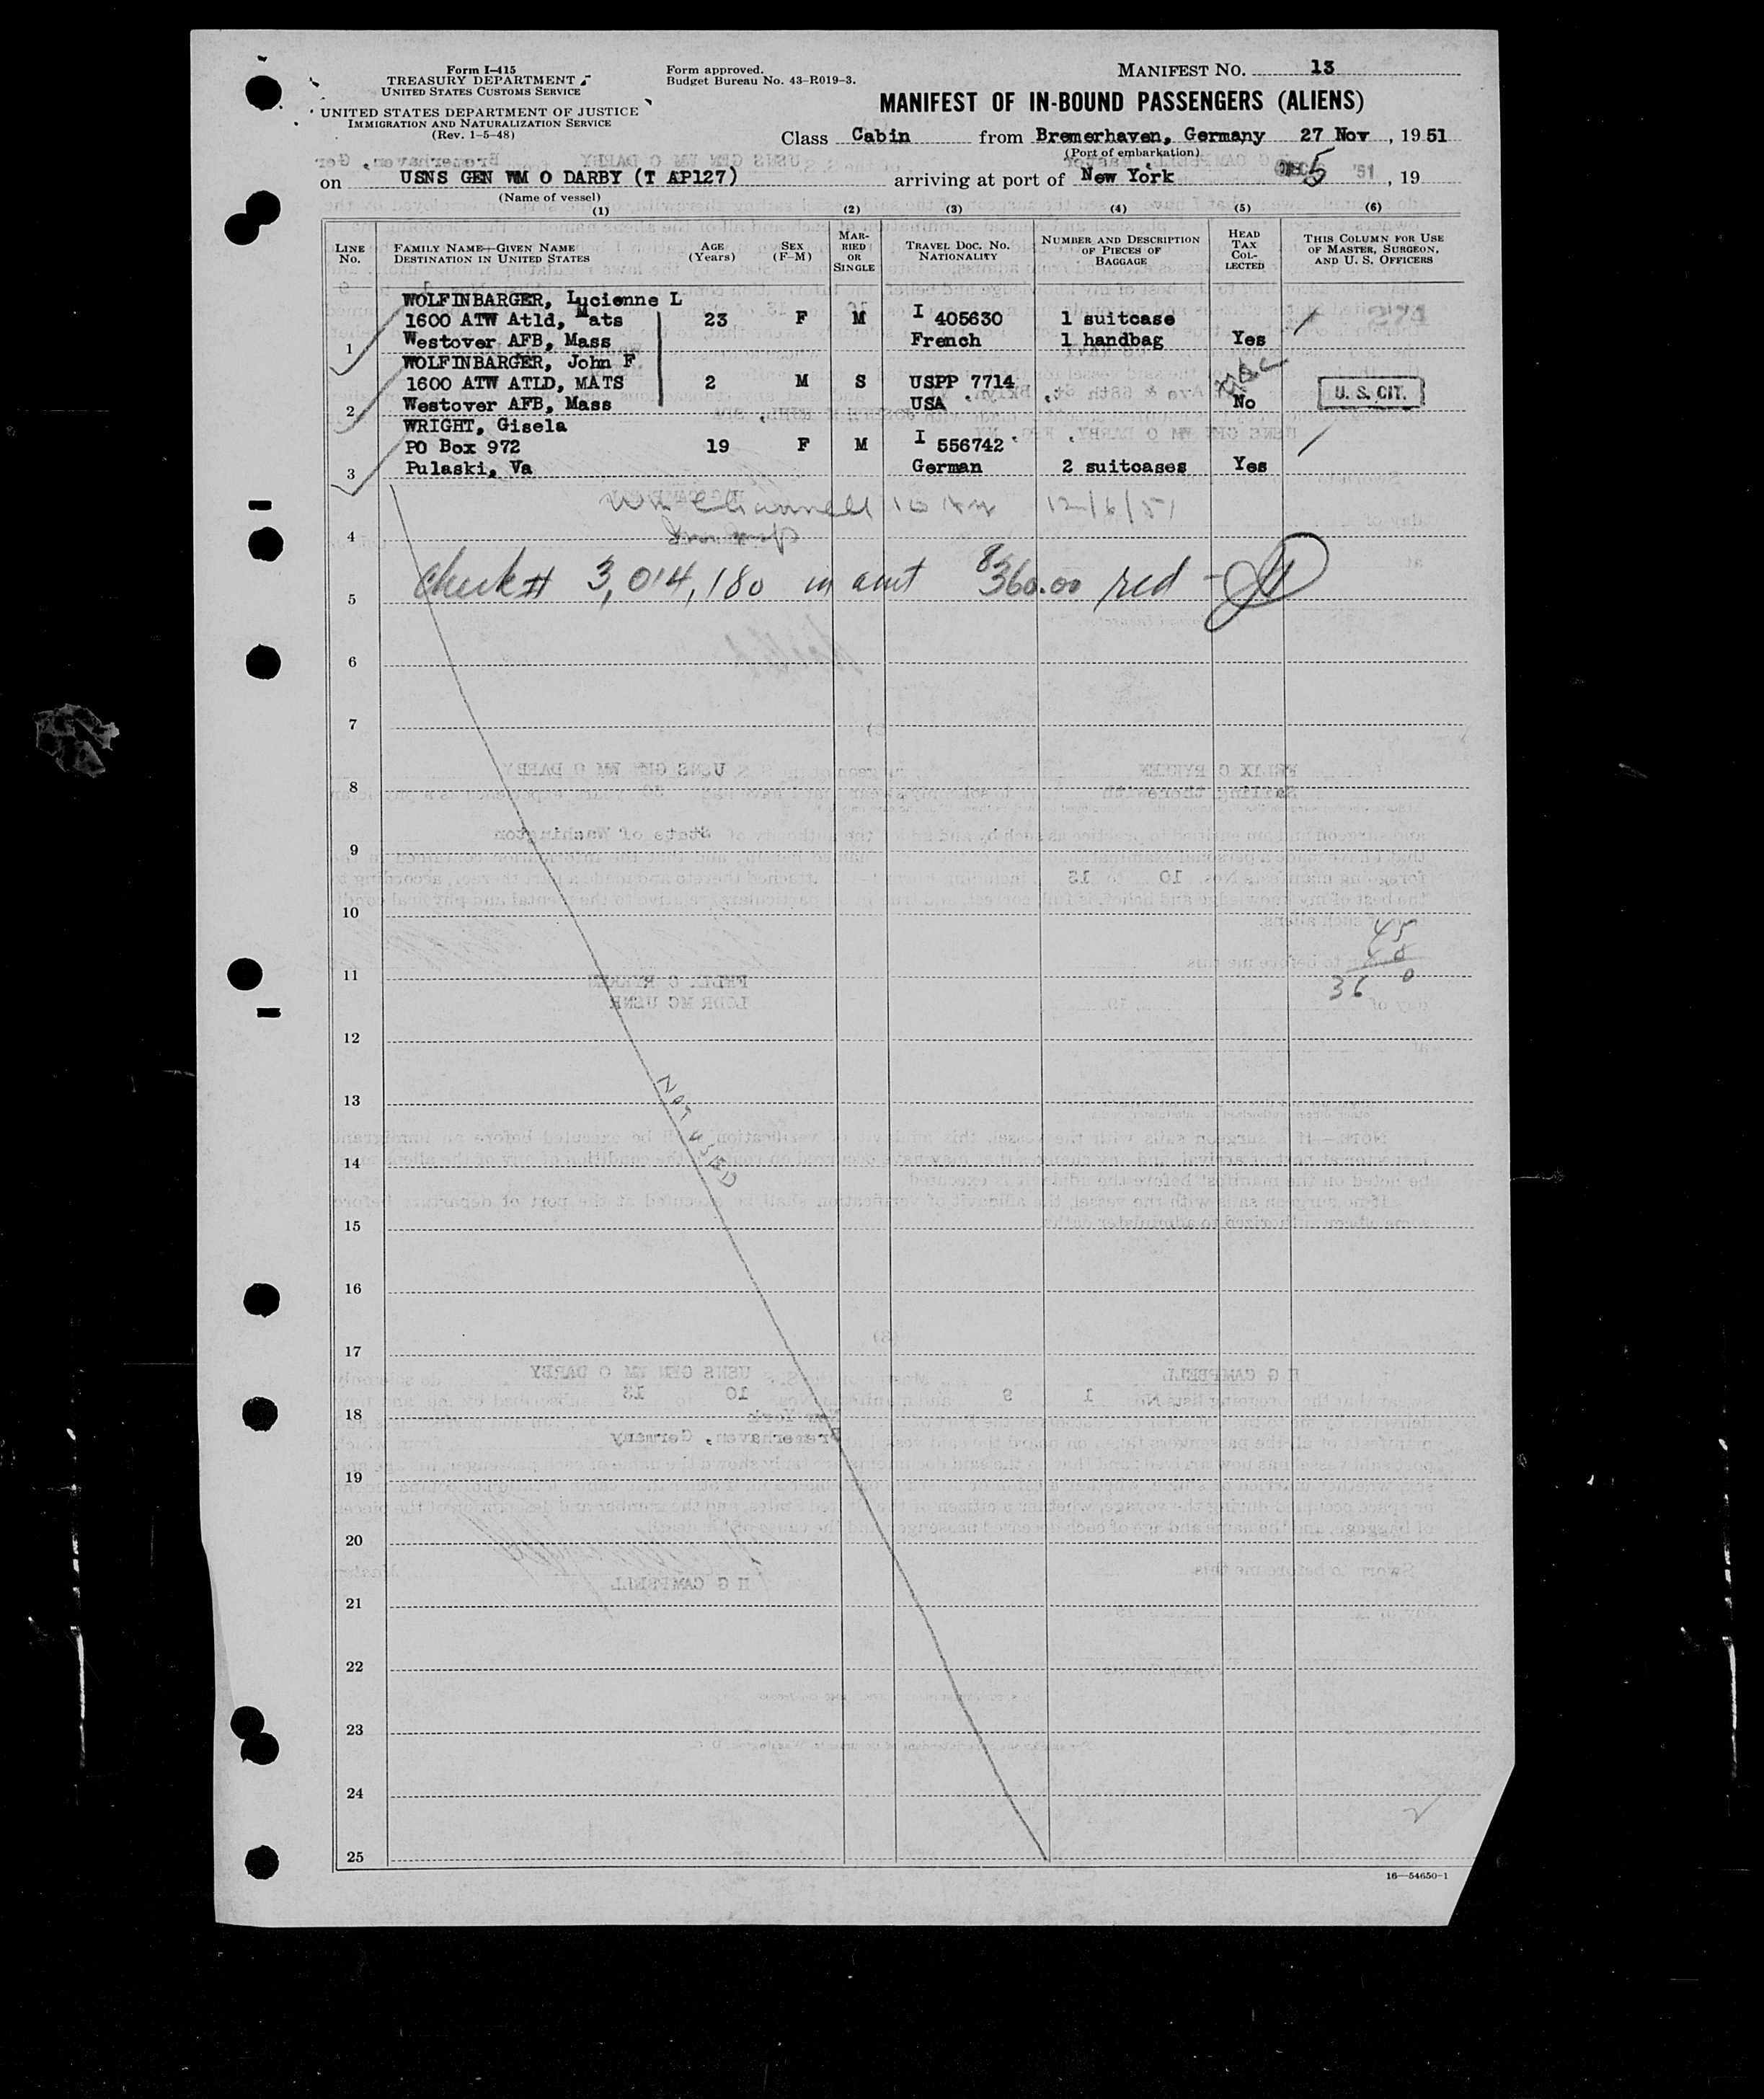 Form I-415
TREASURY DEPARTMENT
UNITED STATES CUSTOMS SERVICE
UNITED STATES DEPARTMENT OF JUSTICE
IMMIGRATION AND NATURALIZATION SERVICE
(Rev. 1-5-48)
Form approved.
Budget Bureau No. 43-R019-3.
MANIFEST NO. 13
MANIFEST OF IN-BOUND PASSENGERS (ALIENS)
Class Cabin from Bremerhaven, Germany 27 Nov, 1951
(Port of embarkation)
on USNS GEN WM O DARBY (T AP127) arriving at port of New York DEC 5 '51, 19
(Name of vessel)
(1) (2) (3) (4) (5) (6)
LINE NO. FAMILY NAME—GIVEN NAME DESTINATION IN UNITED STATES AGE (Years) SEX (F-M) MARRIED OR SINGLE TRAVEL DOC. NO. NATIONALITY NUMBER AND DESCRIPTION OF PIECES OF BAGGAGE HEAD TAX COLLECTED THIS COLUMN FOR USE OF MASTER, SURGEON, AND U. S. OFFICERS
WOLFINBARGER, Lucienne L
1600 ATW Atld, Mats 23 F M I 405630 1 suitcase
1 Westover AFB, Mass French 1 handbag Yes
WOLFINBARGER, John F
1600 ATW ATLD, MATS 2 M S USPP 7714 U. S. CIT.
2 Westover AFB, Mass USA No
WRIGHT, Gisela
PO Box 972 19 F M I 556742
3 Pulaski, Va German 2 suitcases Yes
12/6/51
4
check # 3,014,180 in amt 360.00 recd
5
6
7
8
9
10
45
8
11
360
12
13
NOT USED
14
15
16
17
18
19
20
21
22
23
24
25
16—54650-1